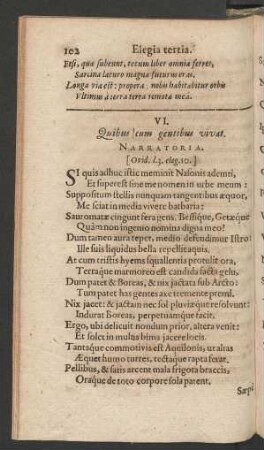 102 Elegia tertia.
Etsi, quæ subeunt, tecum liber omnia ferres,
Sarcina laturo magna futurus eras.
Longa via est: propera. nobis habitabitur orbis
Vltimus á terra terra remota meâ.
VI.
Quibus cum gentibus vivat.
NARRATORIA.
[Ovid. l.3. eleg.10.]
SI quis adhuc istic meminit Nasonis ademti,
Et superest sine me nomen in urbe meum:
Suppositum stellis nunquam tangentibus æquor,
Me sciat in media vivere barbaria:
Sauromatæ cingunt fera gens. Bessique, Getæque
Quàm non ingenio nomina digna meo!
Dum tamen aura tepet, medio defendimur Istro:
Ille suis liquidus bella repellit aquis,
At cum tristis hyems squallentia protulit ora,
Terraque marmoreo est candida facta gelu,
Dum patet & Boreas, & nix jactata sub Arcto:
Tum patet has gentes axe tremente premi.
Nix jacet: & jactam nec sol pluviæque resolvunt:
Indurat Boreas, perpetuamque facit.
Ergo, ubi delicuit nondum prior, altera venit:
Et solet in multis bima jacere locis.
Tantaque commotivis est Aquilonis, ut altas
Æquet humo turres, tectaque rapta ferat.
Pellibus, & sutis arcent mala frigora braccis,
Oraque de toto corpore sola patent.
Sæpè